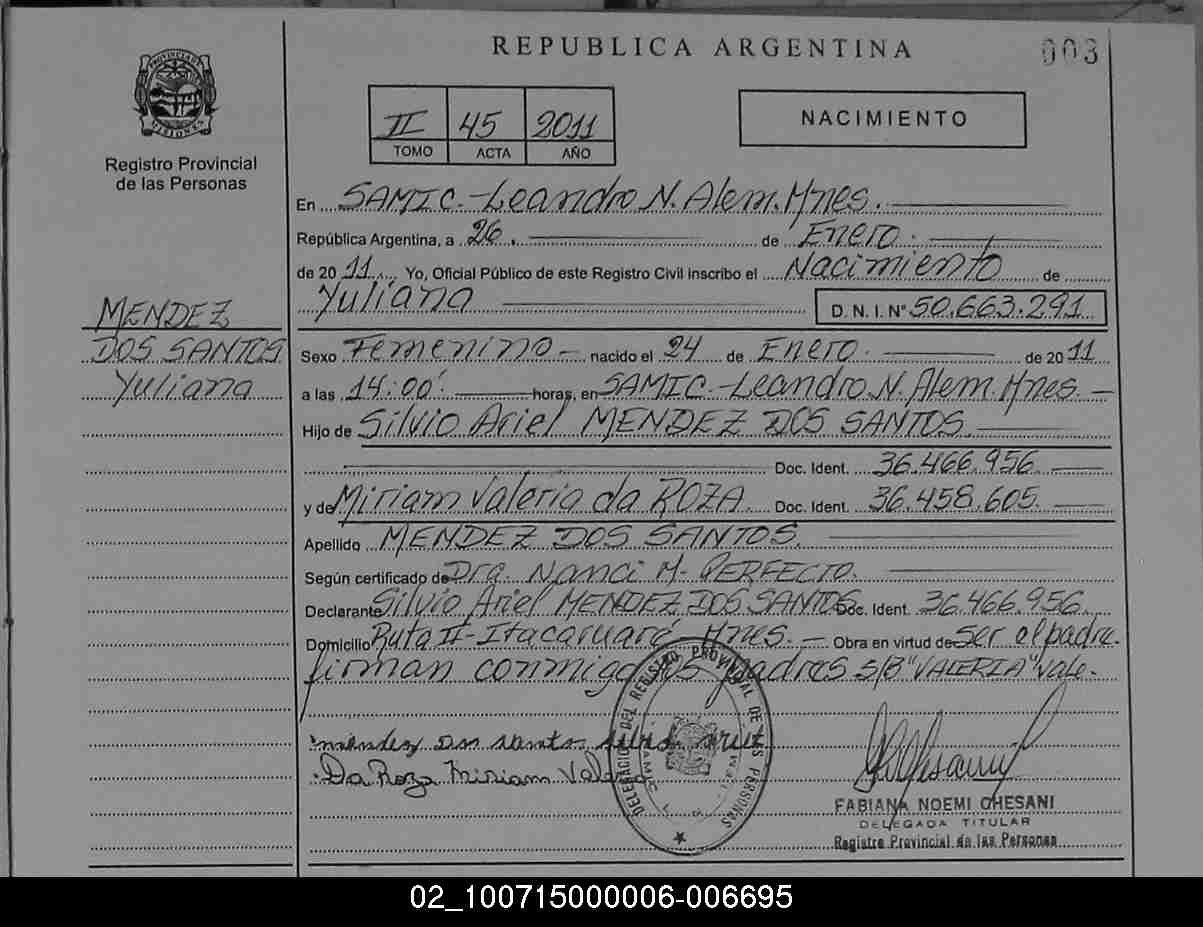 REPUBLICA ARGENTINA
003
PROVINCIA DE MISIONES
Registro Provincial
de las Personas
II 45 2011
TOMO ACTA AÑO
NACIMIENTO
En SAMIC.-Leandro N. Alem. Mnes.
República Argentina, a 26. de Enero.
de 2011 Yo, Oficial Público de este Registro Civil inscribo el Nacimiento de
Yuliana D. N. I. Nº 50.663.291
MENDEZ
DOS SANTOS
Yuliana
Sexo Femenino - nacido el 24 de Enero. de 2011
a las 14:00'. horas, en SAMIC.-Leandro N. Alem. Mnes.-
Hijo de Silvio Ariel MENDEZ DOS SANTOS.
Doc. Ident. 36.466.956
y de Miriam Valeria da ROZA. Doc. Ident. 36.458.605.
Apellido MENDEZ DOS SANTOS.
Según certificado de Dra. Nanci M. PERFECTO.
Declarante Silvio Ariel MENDEZ DOS SANTOS Doc. Ident. 36.466.956
Domicilio Ruta II-Itacaruaré Mnes.- Obra en virtud de ser el padre.
firman conmigo los padres s/B "VALERIA" Vale.
mendez Dos santos silvio ariel
Da Roza Miriam Valeria
DELEGACION DEL REGISTRO PROVINCIAL DE LAS PERSONAS
FABIANA NOEMI CHESANI
DELEGADA TITULAR
Registro Provincial de las Personas
02_100715000006-006695